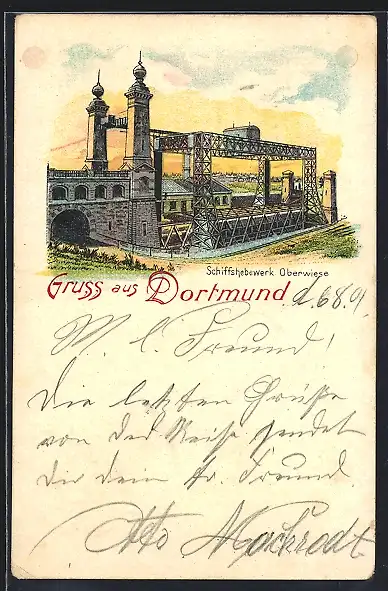 Schiffshebewerk Oberwiese
Gruss aus Dortmund, d. 6.8.01.
M. l. Freund!
Die letzten Grüße
von der Reise sendet
dir dein tr. Freund
Otto Mackrodt